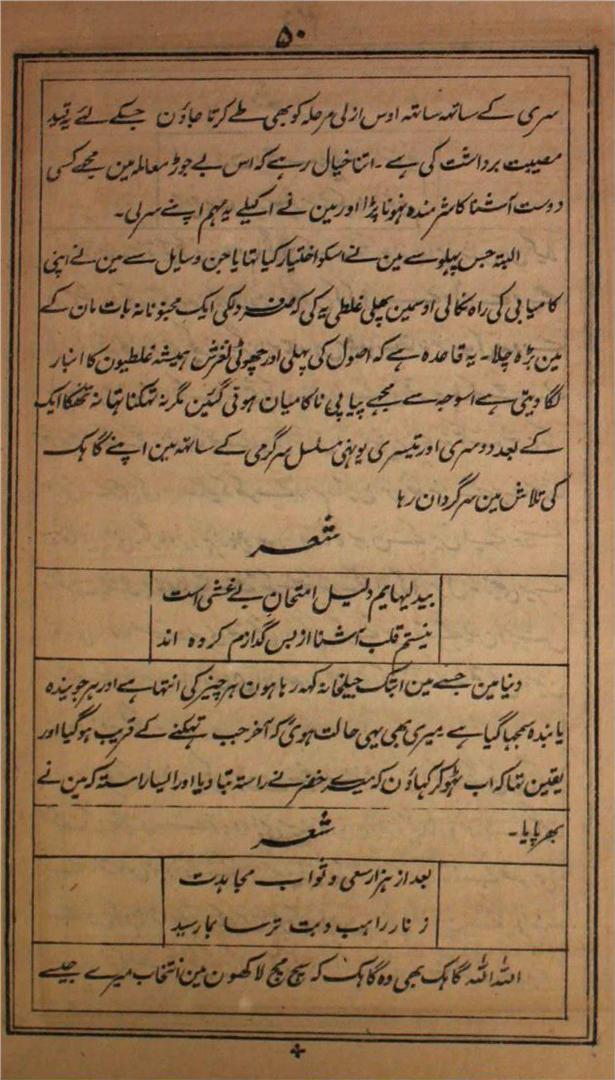 ۵۰
سری کے ساتھ ساتھ اوس ازلی مرحلہ کو بھی طے کرتا جاؤن جسکے لئے یہ قید
مصیبت برداشت کی ہے ۔ اتنا خیال رہے کہ اس بے جوڑ معاملہ مین مجھے کسی
دوست آشنا کا شرمندہ نہونا پڑا اور مین نے اکیلے یہ مہم اپنے سر لی ۔
البتہ جس پہلو سے مین نے اسکو اختیار کیا تہا یا جن وسایل سے مین نے اپنی
کامیابی کی راہ نکالی اوسمین پہلی غلطی یہ کی کہ صرف دلکی ایک مجنونانہ بات مان کے
مین بڑہ چلا ۔ یہ قاعدہ ہے کہ اصول کی پہلی اور چھوٹی لغزش ہمیشہ غلطیون کا انبار
لگا دیتی ہے اسوجہ سے مجھے پیاپی ناکامیان ہوتی گئین مگر نہ تہکنا تہا نہ تھکا ایک
کے بعد دوسری اور تیسری یونہی مسلسل سرگرمی کے ساتھ مین اپنے گاہک
کی تلاش مین سرگردان رہا
شعر
بیدلیہایم دلیل امتحانِ بے غشی است
نیستم قلب آشنا از بس گدازم کردہ اند
دنیا مین جسے مین ابتک جیلخانہ کہہ رہا ہون ہر چیز کی انتہا ہے اور ہر جویندہ
یابندہ سمجہا گیا ہے میری بھی یہی حالت ہوئی کہ آخر جب تہکنے کے قریب ہو گیا اور
یقین تہا کہ اب ٹھوکر کہاؤن کہ میرے خضر نے راستہ بتا دیا اور ایسا راستہ کہ مین نے
بھر پایا ۔
شعر
بعد از ہزار سعی و ثواب مجاہدت
زنار راہب و بت ترسا بما رسید
اللہ اللہ گاہک بھی وہ گاہک کہ سچ مچ لاکھون مین انتخاب میرے جیسے